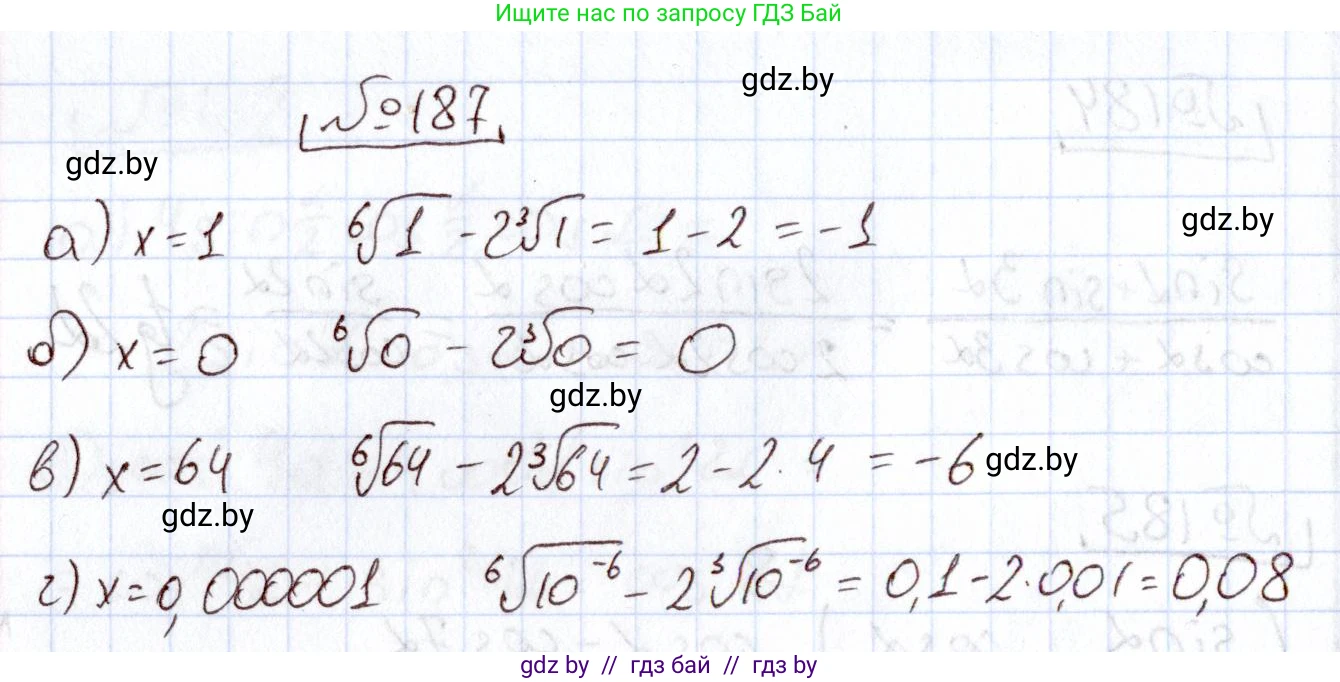 Ищите нас по запросу ГДЗ Бай
gdz.by
№187
gdz.by
а) x = 1 ⁶√1 - 2³√1 = 1 - 2 = -1
gdz.by
б) x = 0 ⁶√0 - 2³√0 = 0
gdz.by
в) x = 64 ⁶√64 - 2³√64 = 2 - 2·4 = -6
gdz.by
gdz.by
г) x = 0,000001 ⁶√10⁻⁶ - 2³√10⁻⁶ = 0,1 - 2·0,01 = 0,08
gdz by // гдз бай // гдз by